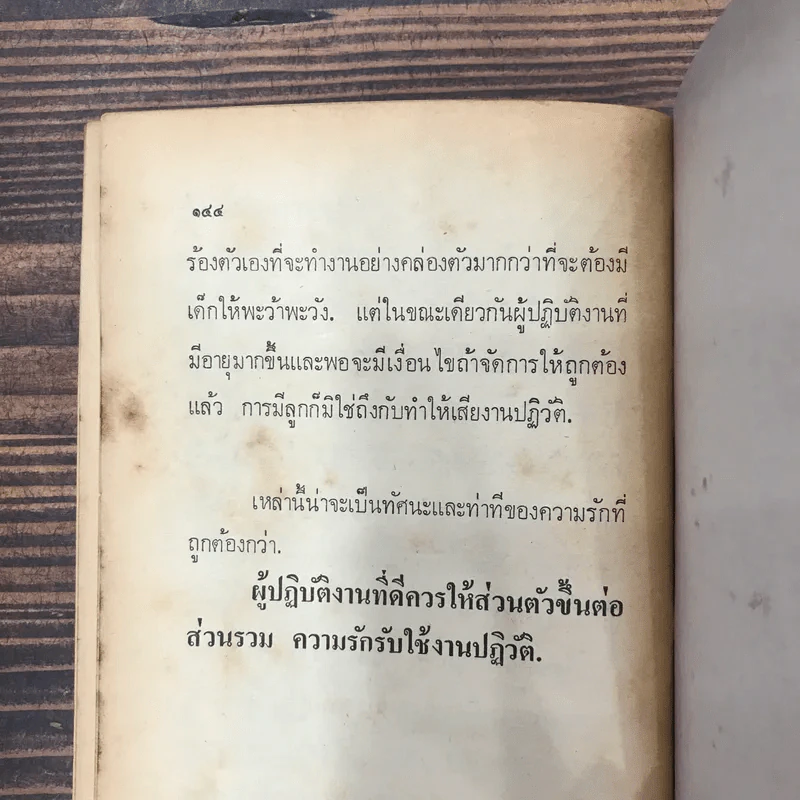 ๑๔๔
ร้องตัวเองที่จะทำงานอย่างคล่องตัวมากกว่าที่จะต้องมี
เด็กให้พะว้าพะวัง. แต่ในขณะเดียวกันผู้ปฏิบัติงานที่
มีอายุมากขึ้นและพอจะมีเงื่อนไขถ้าจัดการให้ถูกต้อง
แล้ว การมีลูกก็มิใช่ถึงกับทำให้เสียงานปฏิวัติ.
เหล่านี้น่าจะเป็นทัศนะและท่าทีของความรักที่
ถูกต้องกว่า.
ผู้ปฏิบัติงานที่ดีควรให้ส่วนตัวขึ้นต่อ
ส่วนรวม ความรักรับใช้งานปฏิวัติ.